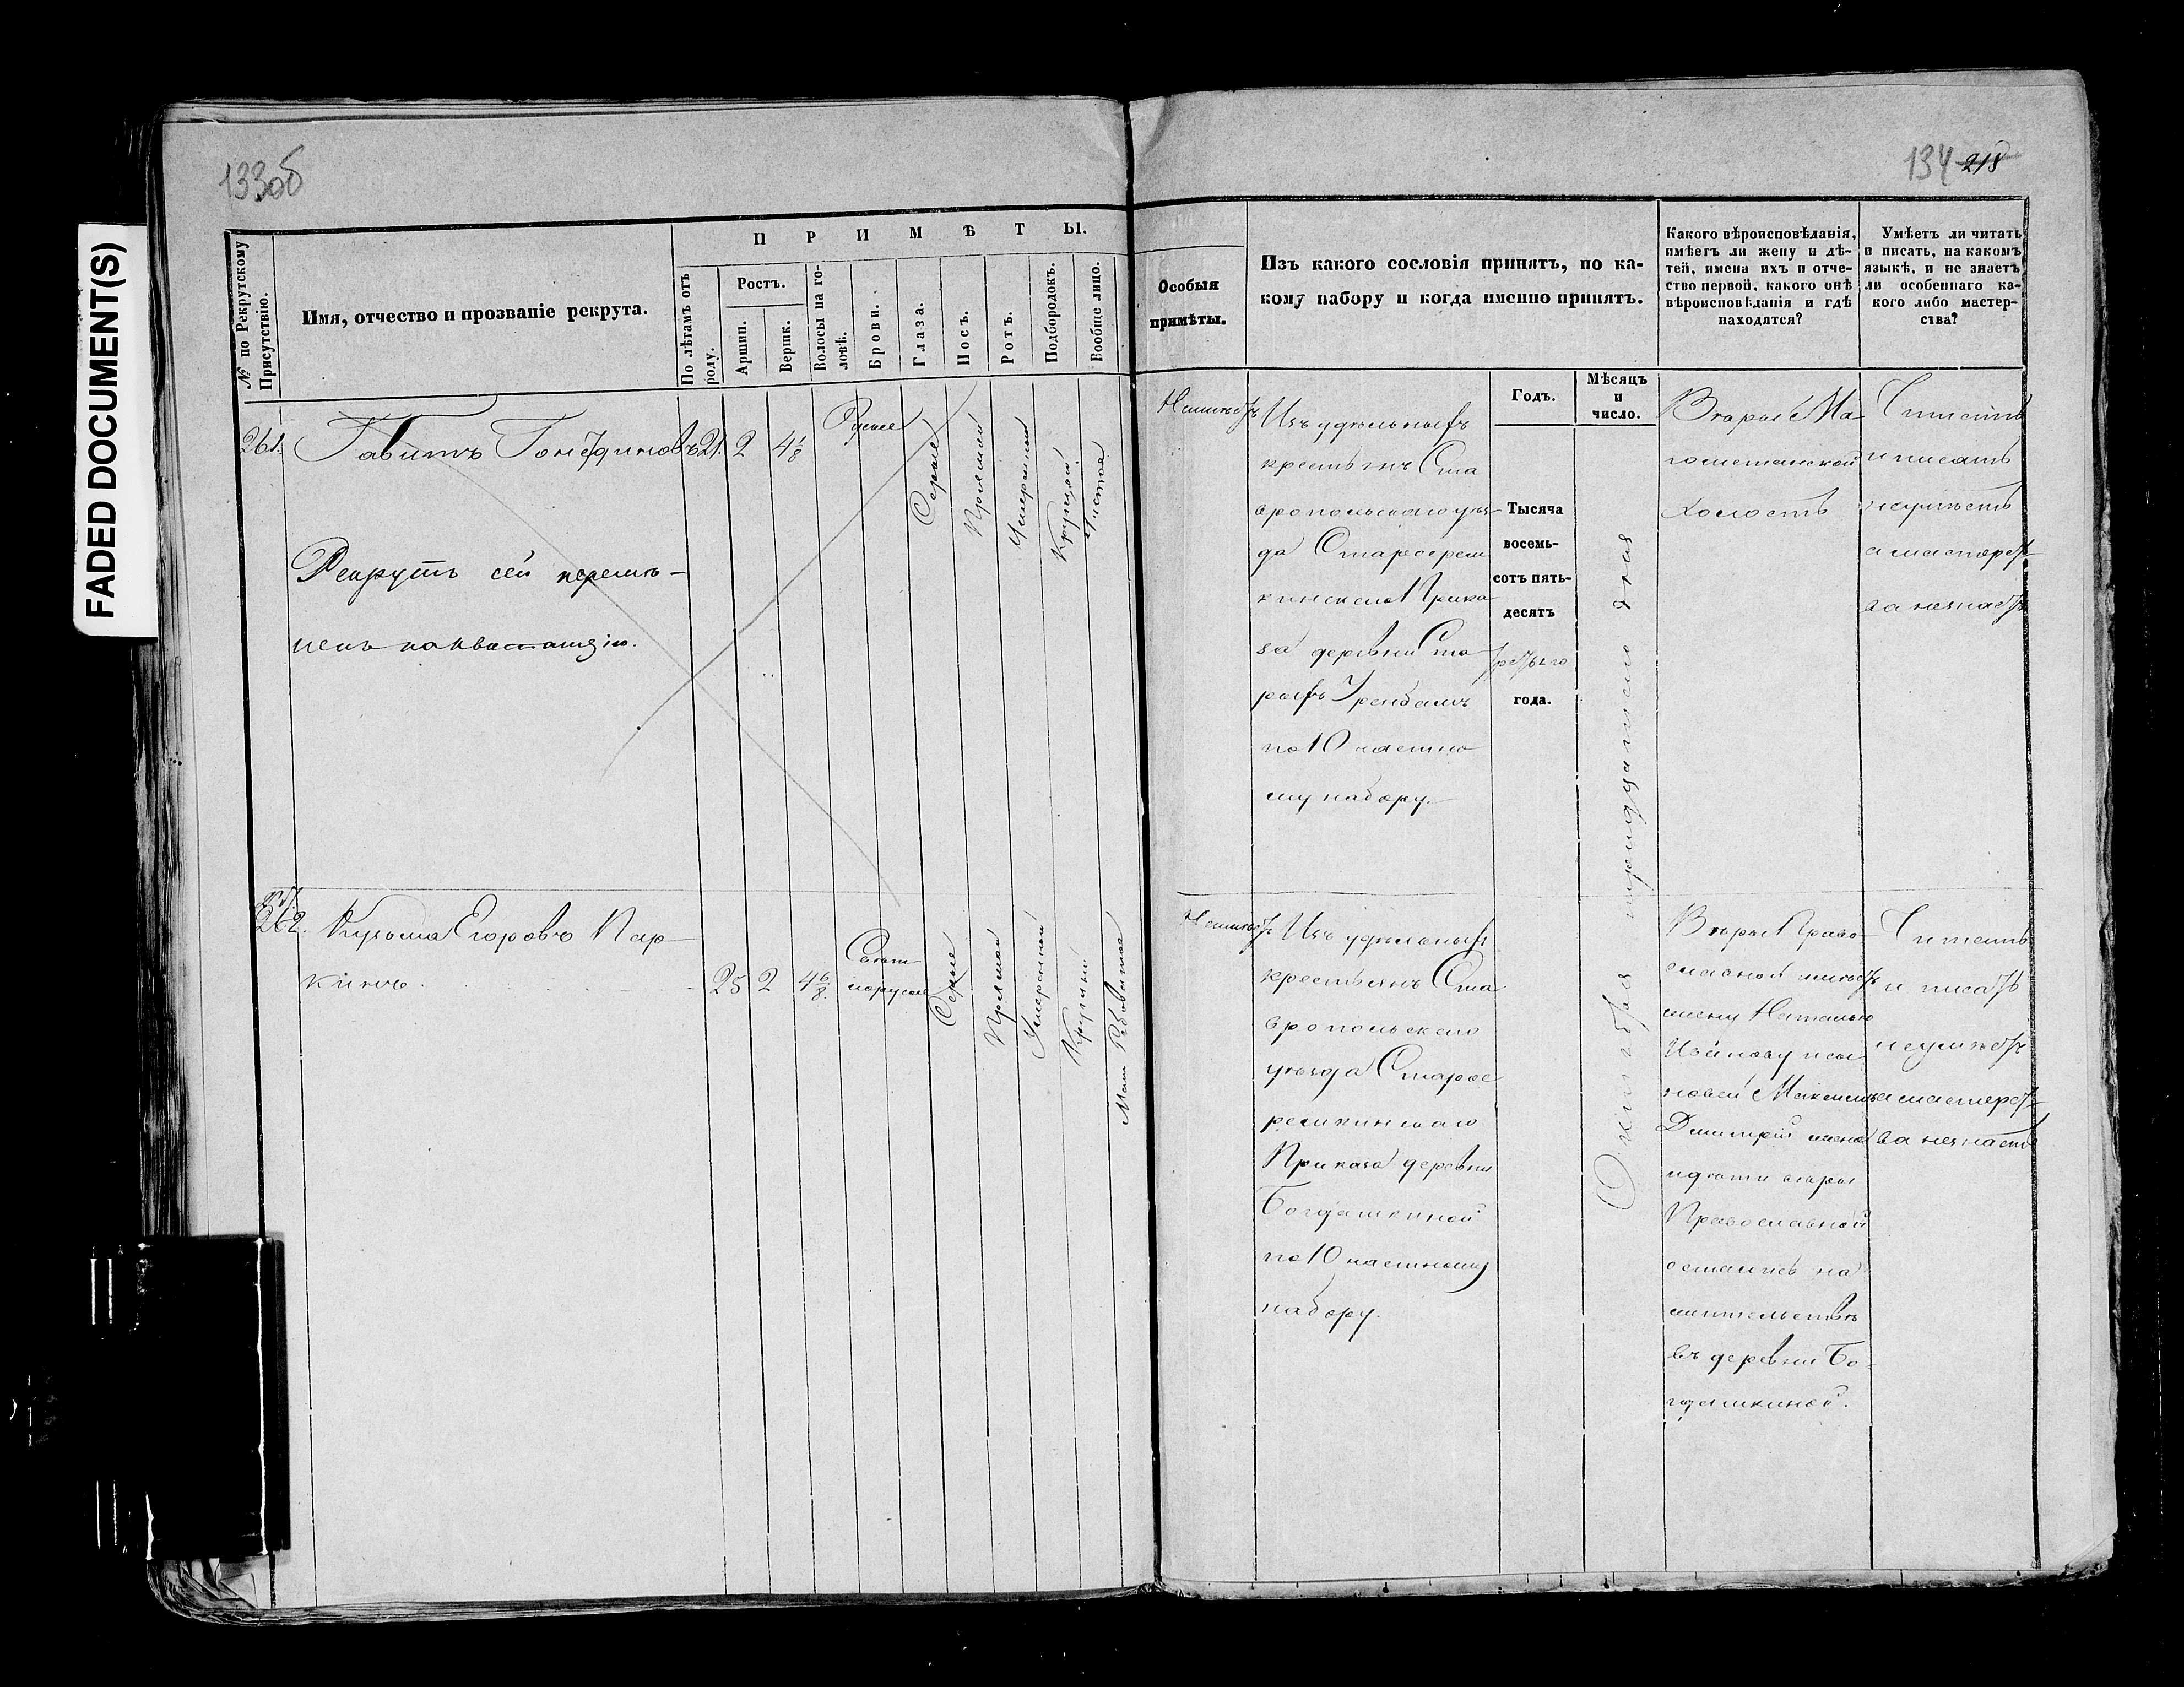 FADED DOCUMENT(S)
133об
134 218
№ по Рекрутскому Присутствію.
Имя, отчество и прозваніе рекрута.
П Р И М Ѣ Т Ы.
По лѣтамъ отъ роду.
Ростъ.
Аршин.
Вершк.
Волосы на головѣ.
Брови.
Глаза.
Носъ.
Ротъ.
Подбородокъ.
Вообще лицо.
Особыя
примѣты.
Изъ какого сословія принятъ, по ка-
кому набору и когда именно принятъ.
Какого вѣроисповѣданія,
имѣетъ ли жену и дѣ-
тей, имена ихъ и отче-
ство первой, какого онѣ
вѣроисповѣданія и гдѣ
находятся?
Умѣетъ ли читать
и писать, на какомъ
языкѣ, и не знаетъ
ли особеннаго ка-
кого либо мастер-
ства?
Годъ.
Мѣсяцъ
и
число.
261.
Габитъ
21. 2 4 1/8
Русые
Сѣрые
Прямой
Умѣренный
Круглый
Чистое
Рекрутъ сей перемѣ-
ненъ на квитанцію.
Неимѣетъ
Изъ удѣльныхъ
крестьянъ Ста
вропольскаго уѣз-
да Староерем
кинскаго Прика
за деревни Ста
рыхъ
по 10 частно
му набору.
Тысяча
восемь-
сотъ пять-
десятъ
третьяго
года.
Октября тридцатаго дня
Вѣры Ма
гометанской
холостъ
Читать
и писать
неумѣетъ
а мастерст-
ва незнаетъ
262.
Кузьма Егоровъ Пар-
кинъ
25 2 4 6/8
Свѣт-
лорусые
Сѣрые
Прямой
Умѣренный
Круглый
Мало Рябоватое
Неимѣетъ
Изъ удѣльныхъ
крестьянъ Ста
вропольскаго
уѣзда Старое
ремкинскаго
Приказа деревни
Богдашкиной
по 10 частному
набору.
Вѣры Право
славной имѣетъ
жену Наталью
Иванову и сы
новей Максима
Дмитрій жена
и дѣти вѣры
Православной
остались на
жительствѣ
въ деревни Бо-
гдашкиной.
Читать
и писать
неумѣетъ
а мастерст-
ва незнаетъ